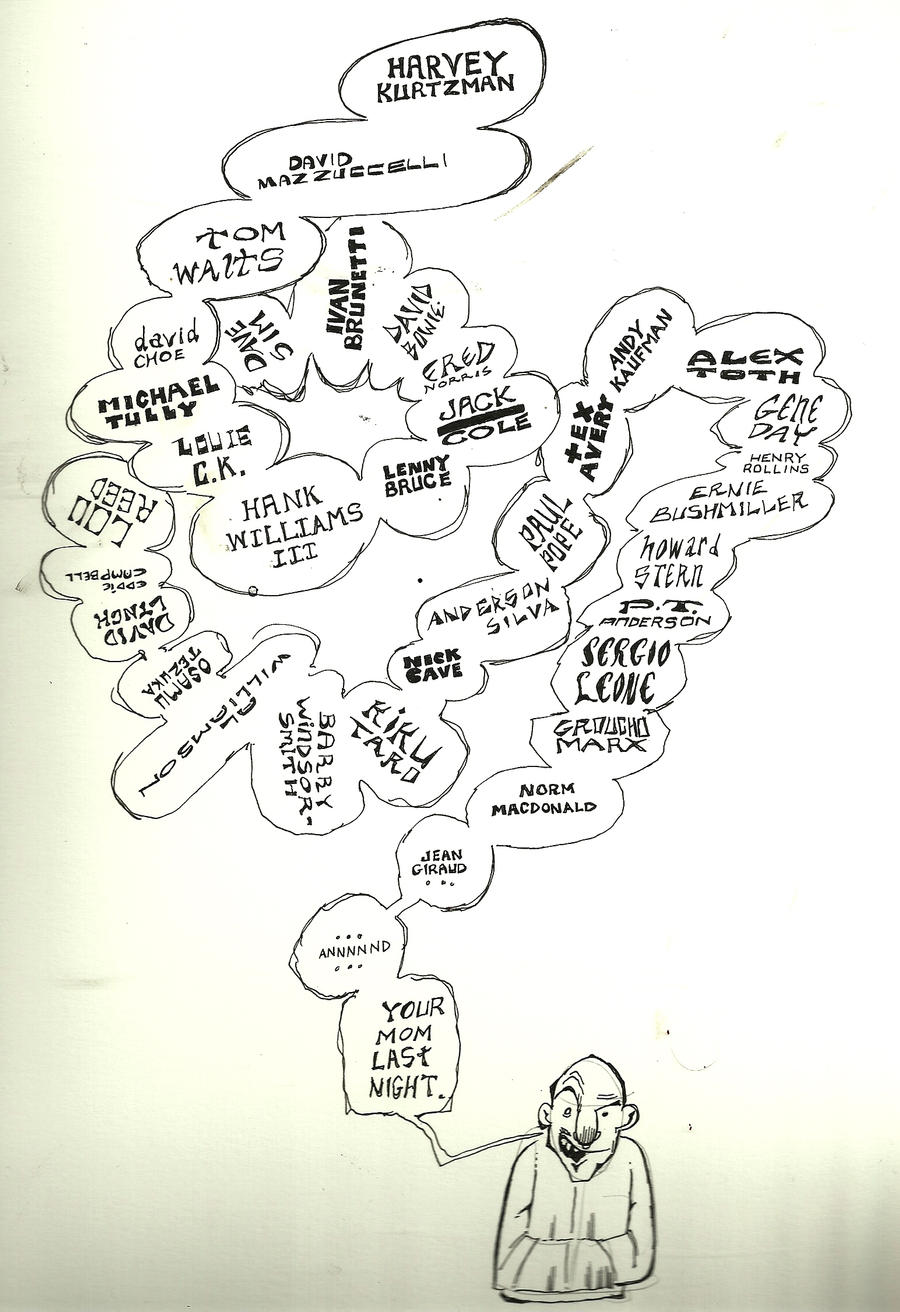 HARVEY
KURTZMAN
DAVID
MAZZUCCELLI
TOM
WAITS
IVAN
BRUNETTI
DAVE
SIM
DAVID
BOWIE
david
CHOE
FRED
NORRIS
MICHAEL
TULLY
JACK
COLE
LOUIE
C.K.
LENNY
BRUCE
HANK
WILLIAMS
III
LOU
REED
EDDIE
CAMPBELL
DAVID
LYNCH
OSAMU
TEZUKA
AL
WILLIAMSON
BARRY
WINDSOR-
SMITH
KIKU
TARO
NICK
CAVE
ANDERSON
SILVA
PAUL
POPE
TEX
AVERY
ANDY
KAUFMAN
ALEX
TOTH
GENE
DAY
HENRY
ROLLINS
ERNIE
BUSHMILLER
howard
STERN
P.T.
ANDERSON
SERGIO
LEONE
GROUCHO
MARX
NORM
MACDONALD
JEAN
GIRAUD
...
...
ANNNNND
...
YOUR
MOM
LAST
NIGHT.